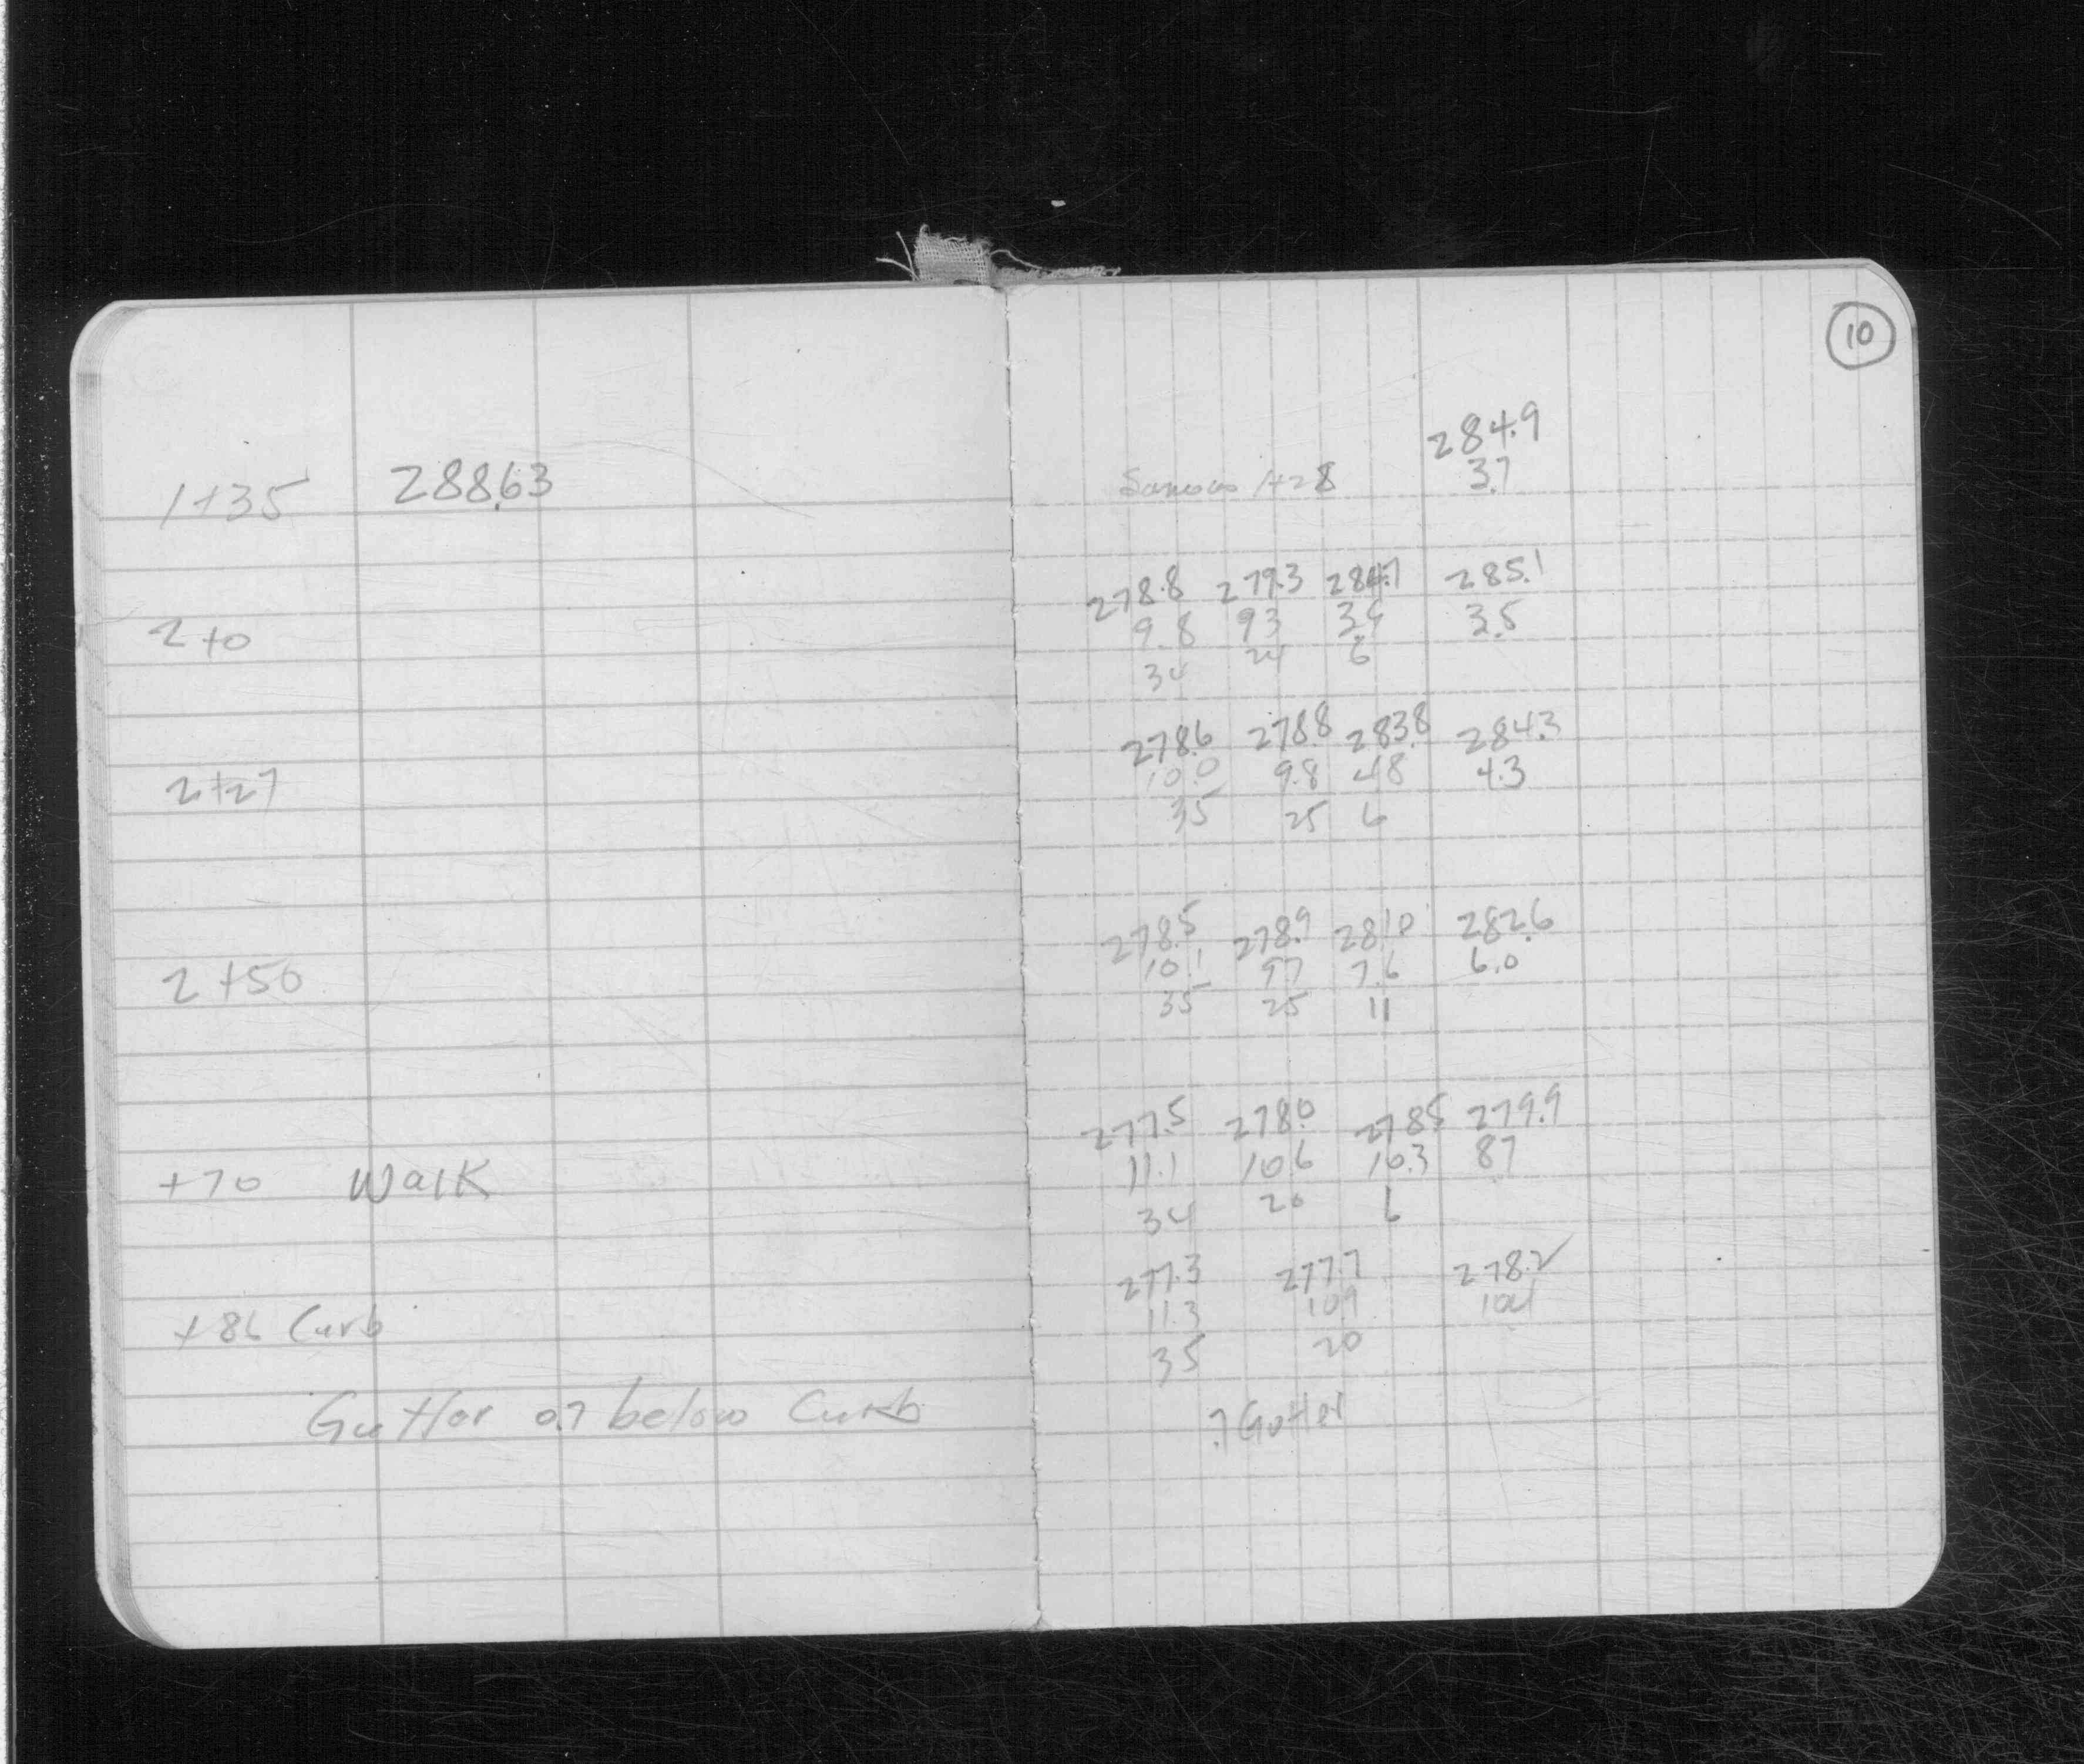 10
284.9
1+35 288.63 Same as 1+28 3.7
278.8 279.3 284.7 285.1
2+0 9.8 9.3 3.9 3.5
34 24 6
278.6 278.8 283.8 284.3
2+27 10.0 9.8 4.8 4.3
35 25 6
278.5 278.9 281.0 282.6
2+50 10.1 9.7 7.6 6.0
35 25 11
277.5 278.0 278.5 279.9
+70 Walk 11.1 10.6 10.3 8.7
34 20 6
277.3 277.7 278.2
+86 Curb 11.3 10.9 10.4
35 20
Gutter 0.7 below Curb .7 Gutter